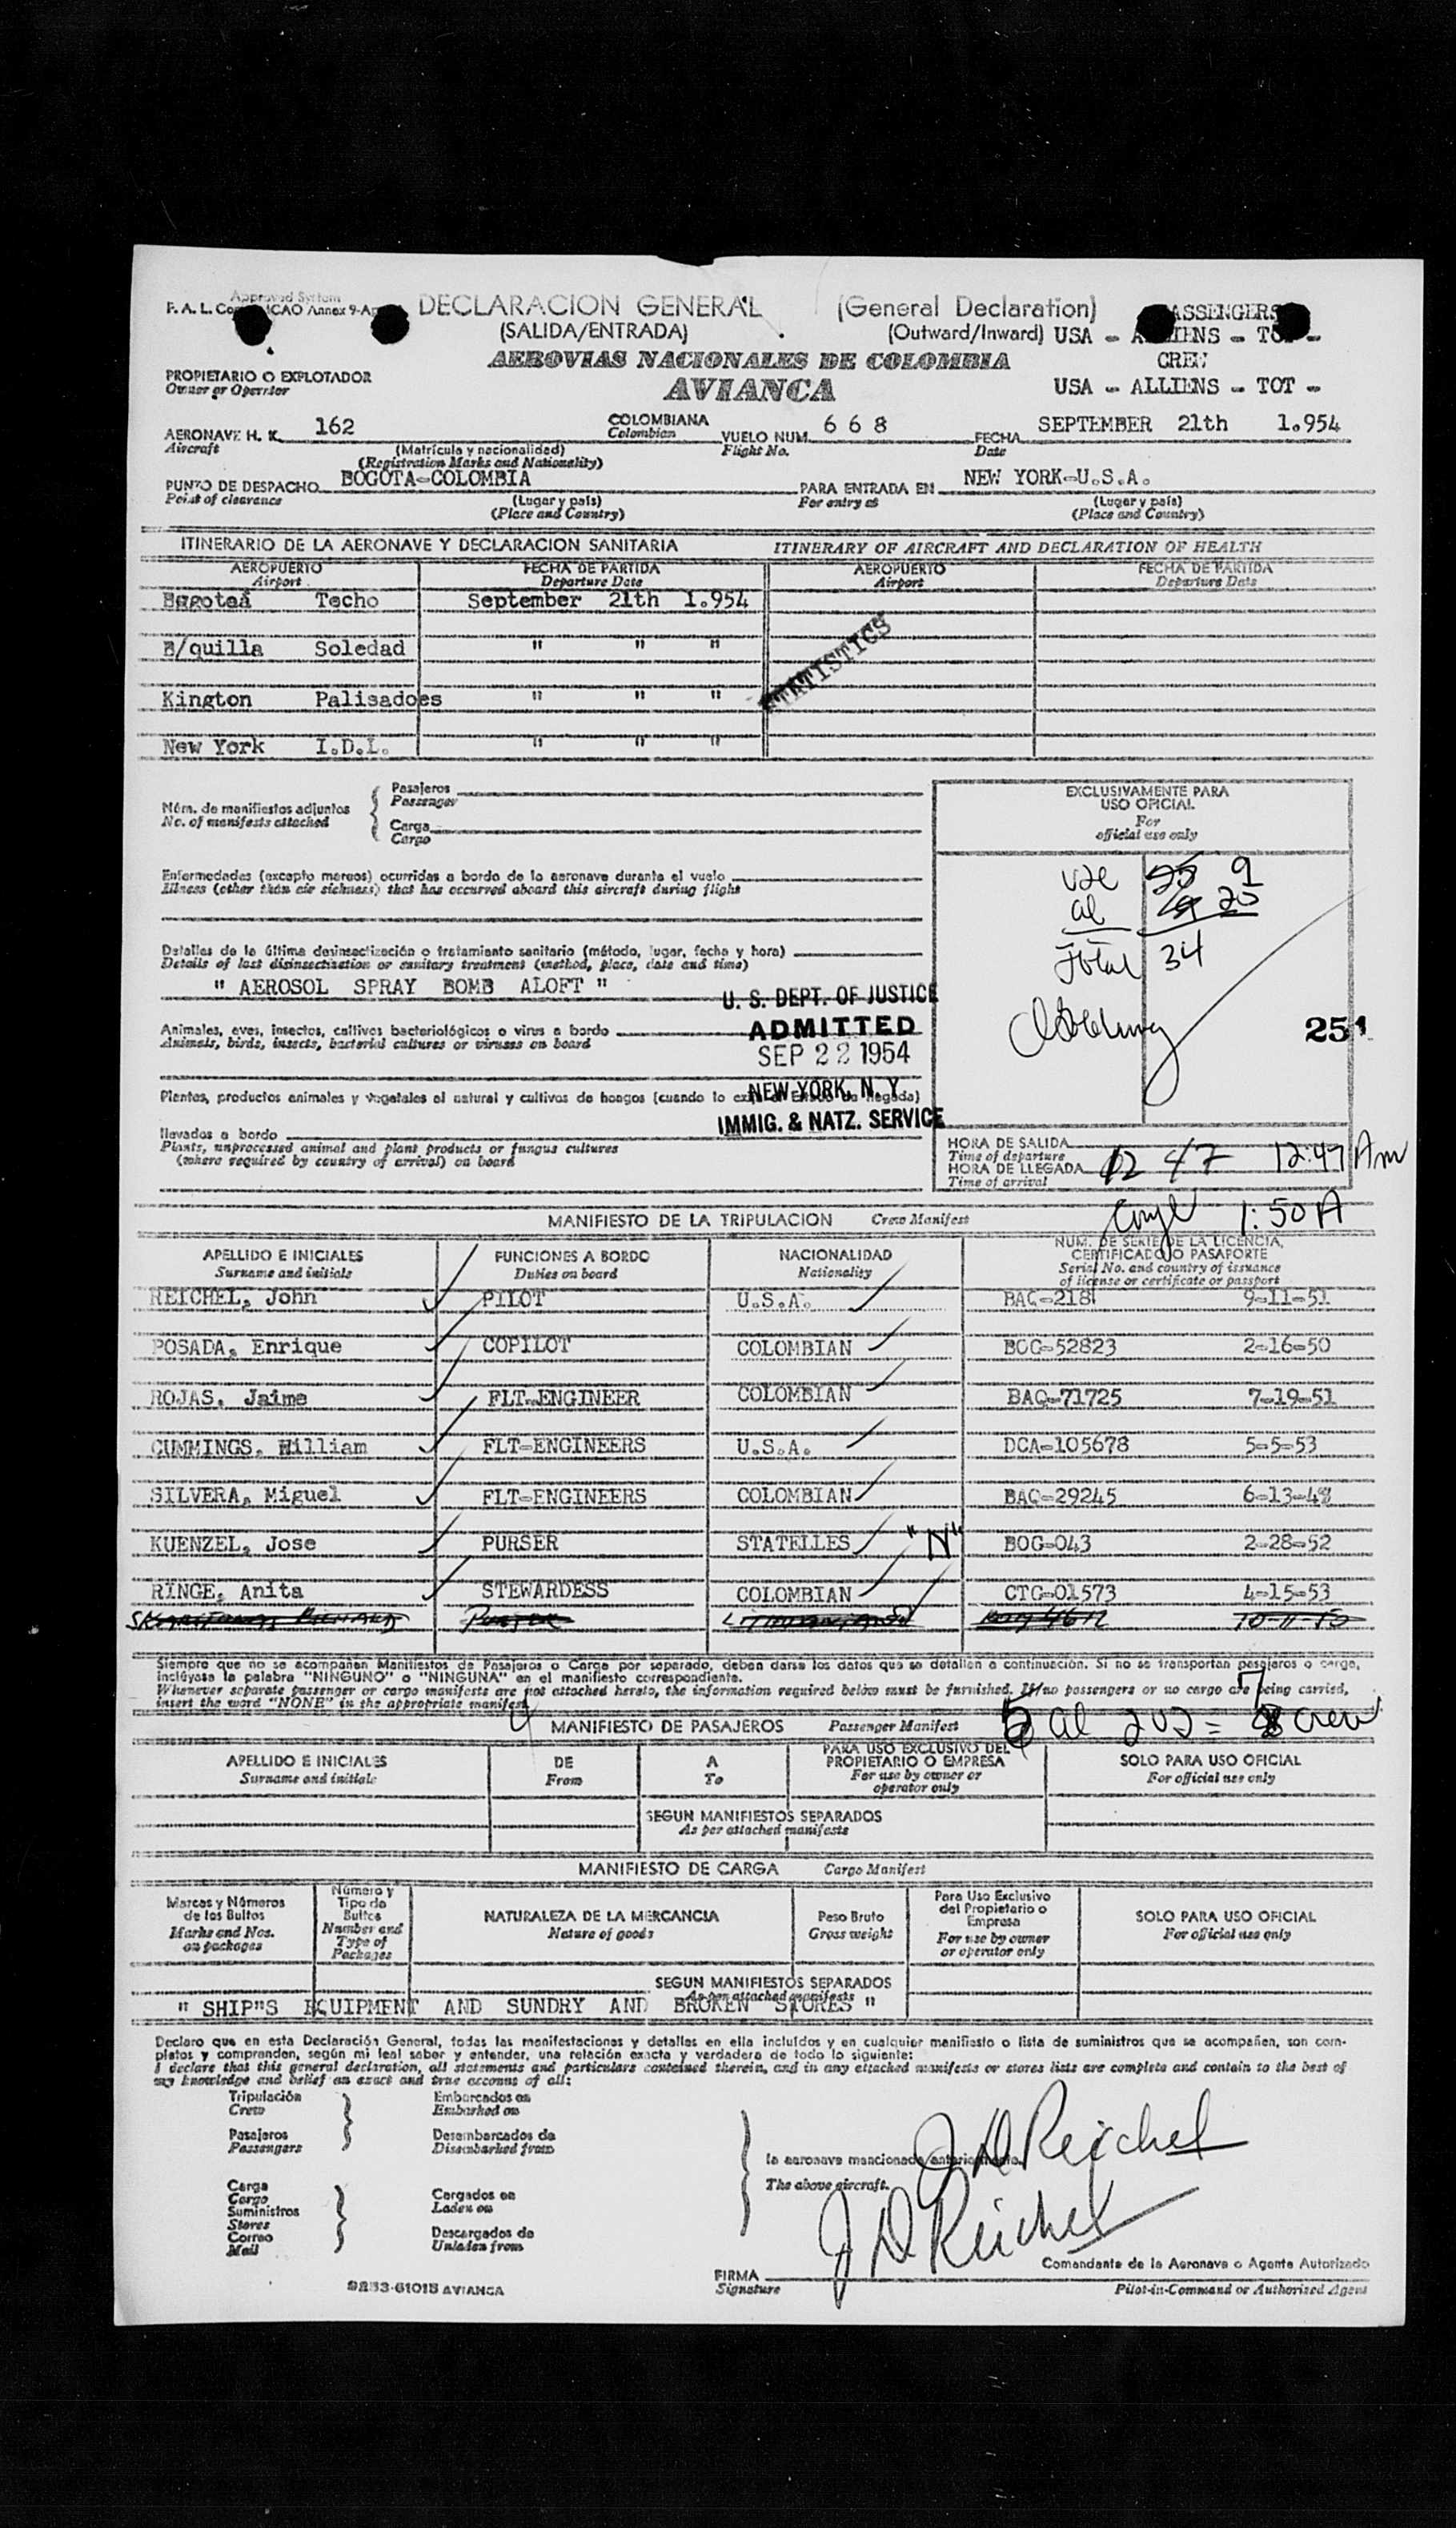 Approved System
F. A. L. ICAO Annex 9-
DECLARACION GENERAL (General Declaration)
(SALIDA/ENTRADA) (Outward/Inward)
PASSENGERS
USA - ALLIENS - TOT -
CREW
USA - ALLIENS - TOT -
AEROVIAS NACIONALES DE COLOMBIA
AVIANCA
PROPIETARIO O EXPLOTADOR
Owner or Operator
AERONAVE H. K. 162 COLOMBIANA VUELO NUM. 6 6 8 FECHA SEPTEMBER 21th 1.954
Aircraft Colombian Flight No. Date
(Matrícula y nacionalidad)
(Registration Marks and Nationality)
PUNTO DE DESPACHO BOGOTA-COLOMBIA PARA ENTRADA EN NEW YORK-U.S.A.
Point of clearance (Lugar y país) For entry at (Lugar y país)
(Place and Country) (Place and Country)
ITINERARIO DE LA AERONAVE Y DECLARACION SANITARIA ITINERARY OF AIRCRAFT AND DECLARATION OF HEALTH
AEROPUERTO FECHA DE PARTIDA AEROPUERTO FECHA DE PARTIDA
Airport Departure Date Airport Departure Date
Bagoteá Techo September 21th 1.954
B/quilla Soledad " " "
Kington Palisadoes " " "
New York I.D.L. " " "
STATISTICS
Núm. de manifiestos adjuntos
No. of manifests attached
Pasajeros
Passenger
Carga
Cargo
EXCLUSIVAMENTE PARA
USO OFICIAL
For
official use only
Enfermedades (excepto mareos) ocurridas a bordo de la aeronave durante el vuelo
Illness (other than air sickness) that has occurred aboard this aircraft during flight
use 25 9
al 25
Total 34
Detalles de la última desinsectización o tratamiento sanitario (método, lugar, fecha y hora)
Details of last disinsectization or sanitary treatment (method, place, date and time)
" AEROSOL SPRAY BOMB ALOFT "
U. S. DEPT. OF JUSTICE
ADMITTED
SEP 22 1954
NEW YORK, N. Y.
IMMIG. & NATZ. SERVICE
251
Animales, aves, insectos, cultivos bacteriológicos o virus a bordo
Animals, birds, insects, bacterial cultures or viruses on board
Plantas, productos animales y vegetales al natural y cultivos de hongos (cuando lo exija el Estado de llegada)
llevados a bordo
Plants, unprocessed animal and plant products or fungus cultures
(where required by country of arrival) on board
HORA DE SALIDA
Time of departure
HORA DE LLEGADA 12 47 12:47 Am
Time of arrival
1:50 A
MANIFIESTO DE LA TRIPULACION Crew Manifest
APELLIDO E INICIALES FUNCIONES A BORDO NACIONALIDAD NUM. DE SERIE DE LA LICENCIA,
CERTIFICADO O PASAPORTE
Surname and initials Duties on board Nationality Serial No. and country of issuance
of license or certificate or passport
REICHEL, John PILOT U.S.A. BAQ-218 9-11-51
POSADA, Enrique COPILOT COLOMBIAN BOG-52823 2-16-50
ROJAS, Jaime FLT-ENGINEER COLOMBIAN BAQ-71725 7-19-51
CUMMINGS, Hilliam FLT-ENGINEERS U.S.A. DCA-105678 5-5-53
SILVERA, Miguel FLT-ENGINEERS COLOMBIAN BAQ-29245 6-13-48
KUENZEL, Jose PURSER STATELLES "N" BOG-043 2-28-52
RINGE, Anita STEWARDESS COLOMBIAN CTG-01573 4-15-53
Siempre que no se acompañen Manifiestos de Pasajeros o Carga por separado, deben darse los datos que se detallan a continuación. Si no se transportan pasajeros o carga,
inclúyase la palabra "NINGUNO" o "NINGUNA" en el manifiesto correspondiente.
Whenever separate passenger or cargo manifests are not attached hereto, the information required below must be furnished. If no passengers or no cargo are being carried,
insert the word "NONE" in the appropriate manifest.
MANIFIESTO DE PASAJEROS Passenger Manifest 5 al 2 us = 7 crew
APELLIDO E INICIALES DE A PARA USO EXCLUSIVO DEL
PROPIETARIO O EMPRESA SOLO PARA USO OFICIAL
Surname and initials From To For use by owner or
operator only For official use only
SEGUN MANIFIESTOS SEPARADOS
As per attached manifests
MANIFIESTO DE CARGA Cargo Manifest
Marcas y Números
de los Bultos
Marks and Nos.
on packages
Número y
Tipo de
Bultos
Number and
Type of
Packages
NATURALEZA DE LA MERCANCIA
Nature of goods
Peso Bruto
Gross weight
Para Uso Exclusivo
del Propietario o
Empresa
For use by owner
or operator only
SOLO PARA USO OFICIAL
For official use only
SEGUN MANIFIESTOS SEPARADOS
As per attached manifests
" SHIP"S EQUIPMENT AND SUNDRY AND BROKEN STORES "
Declaro que en esta Declaración General, todas las manifestaciones y detalles en ella incluídos y en cualquier manifiesto o lista de suministros que se acompañen, son com-
pletos y comprenden, según mi leal saber y entender, una relación exacta y verdadera de todo lo siguiente:
I declare that this general declaration, all statements and particulars contained therein, and in any attached manifests or stores lists are complete and contain to the best of
my knowledge and belief an exact and true account of all:
Tripulación
Crew
Pasajeros
Passengers
Embarcados en
Embarked on
Desembarcados de
Disembarked from
Carga
Cargo
Suministros
Stores
Correo
Mail
Cargados en
Laden on
Descargados de
Unladen from
la aeronave mencionada anteriormente.
The above aircraft.
J D Reichel
J D Reichel
FIRMA
Signature
Comandante de la Aeronave o Agente Autorizado
Pilot-in-Command or Authorized Agent
AVIANCA